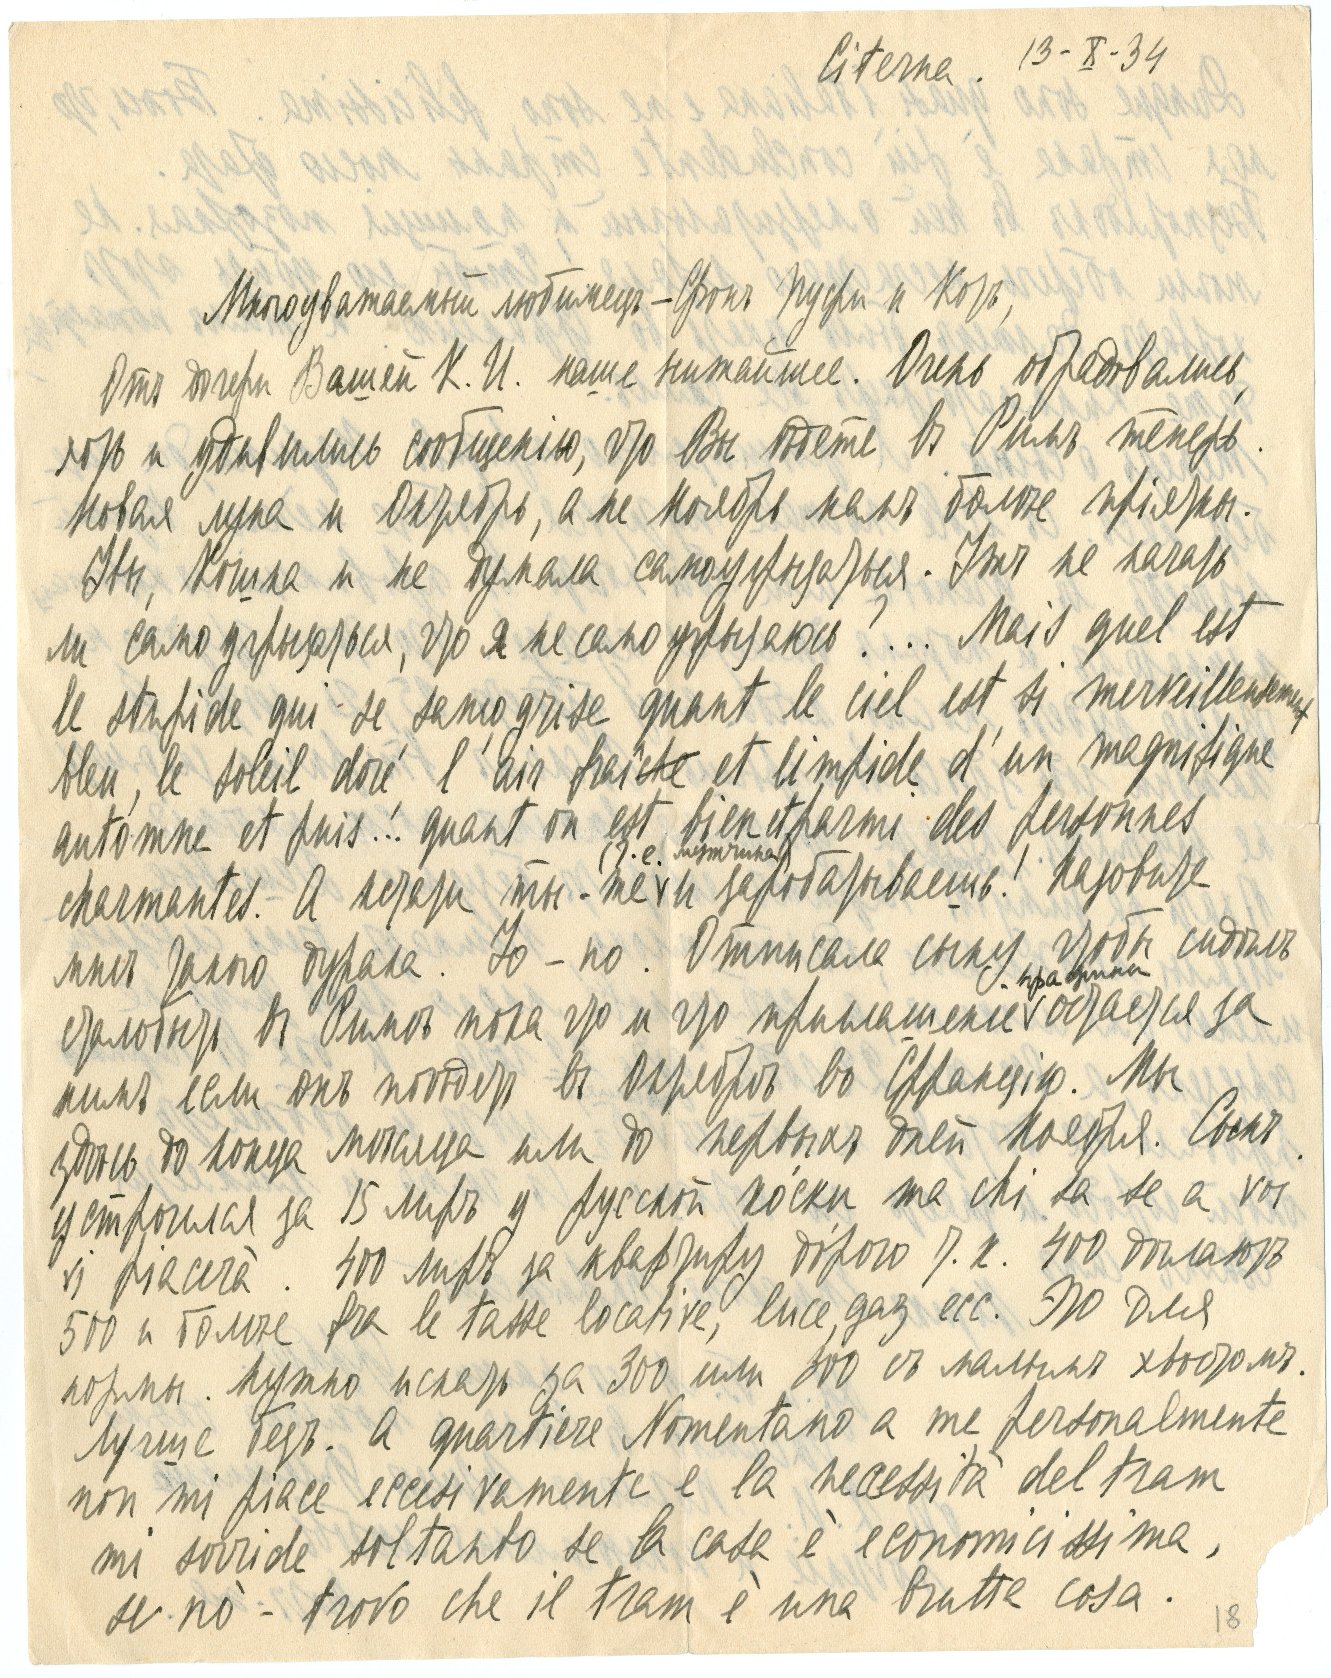 Citerna. 13-X-34
Многоуважаемый любимецъ - Фонъ Пуфи и Котъ,
Отъ дочери Вашей К. И. наше нижайшее. Очень обрадовались,
котъ и удивились сообщенію, что Вы ѣдете въ Римъ теперь.
Новая луна и Октябрь, а не Ноябрь намъ болѣе пріятны.
Увы, Кошка и не думала самоугрызаться. Ужъ не начать
ли самоугрызаться, что я не самоугрызаюсь?.... Mais quel est
le stupide qui se samogrise quant le ciel est si merveilleusement
bleu, le soleil doré l'air fraîche et limpide d'un magnifique
automne et puis..! quant on est bien et parmi des personnes
charmantes. - А кстати ты-же и заработываешь! Назовите
(т. е. мужчина)
мнѣ такого дурака. То-то. Отписала сыну чтобы сидѣлъ
сталобыть въ Римѣ пока что и что приглашеніе остается за
нимъ если онъ поѣдетъ въ Октябрѣ во Францію. Мы
здѣсь до конца мѣсяца или до первыхъ дней Ноября. Сынъ
устроился за 15 лиръ у русской кóски ma chi sa se a voi
vi piacerà. 400 лиръ за квартиру дóрого т. к. 400 дѣлаютъ
500 и болѣе fra le tasse locative, luce, gaz ecc. Это для
нормы. Нужно искать за 300 или 300 съ малымъ хвостомъ.
Лучше безъ. A quartiere Nomentano a me personalmente
non mi piace eccesivamente e la necessità del tram
mi sorride soltanto se la casa è economicissima,
se nò - trovo che il tram è una brutta cosa.
18